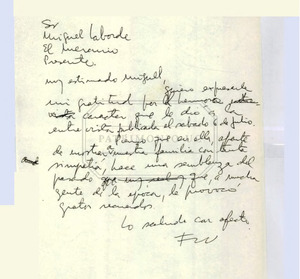 Sr
Miguel Laborde
El Mercurio
Presente.
muy estimado Miguel,
quiero expresarle
mi gratitud por el
carácter que le dio a
entrevista publicada el sábado 6 de julio.
que en ella, aparte
de mostrar nuestra familia con tanta
simpatía, hace una semblanza del
pasado que, a mucha
gente de la época, le provocó
gratos recuerdos.
Lo saluda con afecto